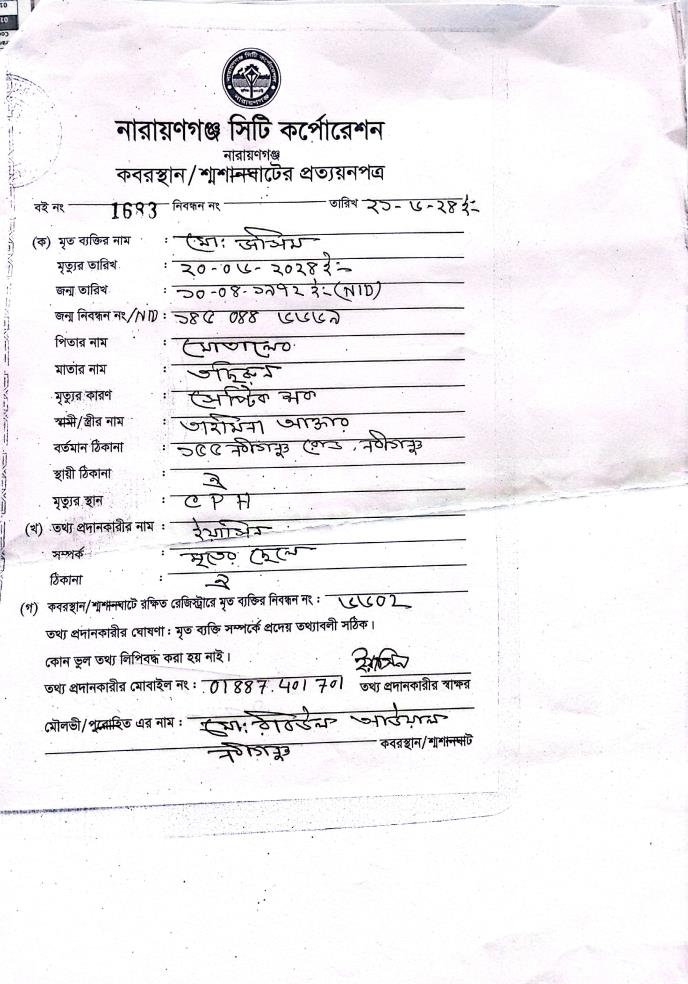 নারায়ণগঞ্জ সিটি কর্পোরেশন
নারায়ণগঞ্জ
কবরস্থান/শ্মশানঘাটের প্রত্যয়নপত্র
বই নং 1683 নিবন্ধন নং তারিখ ২১-৬-২৪ ইং
(ক) মৃত ব্যক্তির নাম : মো: জসিম
মৃত্যুর তারিখ : ২০-০৬-২০২৪ ইং
জন্ম তারিখ : ১০-০৪-১৯৭২ ইং (NID)
জন্ম নিবন্ধন নং/NID : ১৪৫ 088 ৬৬৬৯
পিতার নাম : মোতালেব
মাতার নাম :
মৃত্যুর কারণ : সেপ্টিক শক
স্বামী/স্ত্রীর নাম : তাহমিনা আক্তার
বর্তমান ঠিকানা : ১৫৫ নবীগঞ্জ রোড, নবীগঞ্জ
স্থায়ী ঠিকানা : ঐ
মৃত্যুর স্থান : C P H
(খ) তথ্য প্রদানকারীর নাম : ইয়াসিন
সম্পর্ক : মৃতের ছেলে
ঠিকানা : ঐ
(গ) কবরস্থান/শ্মশানঘাটে রক্ষিত রেজিস্ট্রারে মৃত ব্যক্তির নিবন্ধন নং : ৬৬০২
তথ্য প্রদানকারীর ঘোষণা : মৃত ব্যক্তি সম্পর্কে প্রদেয় তথ্যাবলী সঠিক।
কোন ভুল তথ্য লিপিবদ্ধ করা হয় নাই।
ইয়াসিন
তথ্য প্রদানকারীর মোবাইল নং : 01887.401 701 তথ্য প্রদানকারীর স্বাক্ষর
মৌলভী/পুরোহিত এর নাম : মো: রবিউল আউয়াল
নবীগঞ্জ কবরস্থান/শ্মশানঘাট